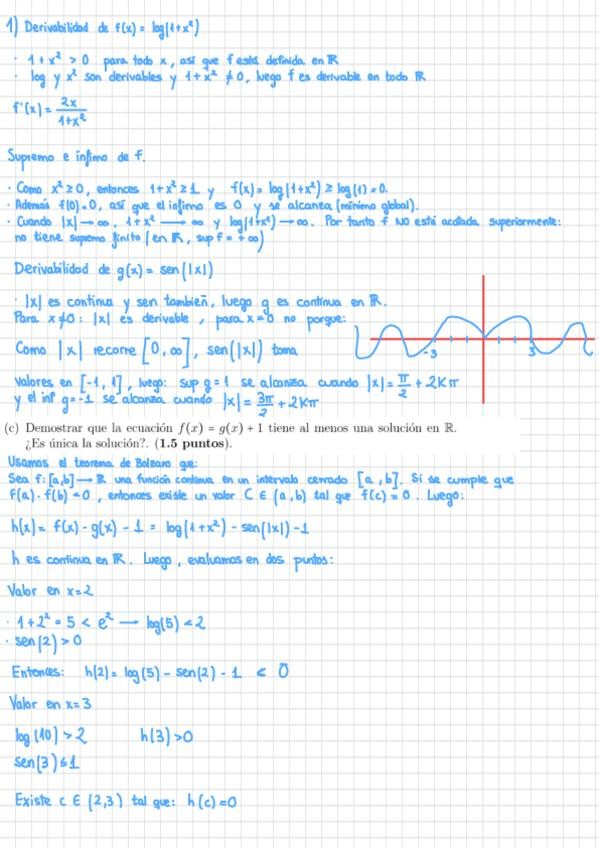 1) Derivabilidad de f(x) = log(1+x²)
· 1 + x² > 0 para todo x, así que f está definida en ℝ
· log y x² son derivables y 1+x² ≠ 0, luego f es derivable en todo ℝ
f'(x) = 2x / 1+x²
Supremo e ínfimo de f.
· Como x² ≥ 0, entonces 1+x² ≥ 1 y f(x) = log(1+x²) ≥ log(1) = 0.
· Además f(0) = 0, así que el ínfimo es 0 y se alcanza (mínimo global).
· Cuando |x| → ∞, 1+x² → ∞ y log(1+x²) → ∞. Por tanto f NO está acotada superiormente:
no tiene supremo finito (en ℝ, sup f = +∞)
Derivabilidad de g(x) = sen(|x|)
· |x| es continua y sen también, luego g es continua en ℝ.
Para x ≠ 0: |x| es derivable, para x = 0 no porque:
Como |x| recorre [0, ∞], sen(|x|) toma
-3 3
valores en [-1, 1], luego: sup g = 1 se alcanza cuando |x| = π/2 + 2Kπ
y el inf g = -1 se alcanza cuando |x| = 3π/2 + 2Kπ
(c) Demostrar que la ecuación f(x) = g(x) + 1 tiene al menos una solución en ℝ.
¿Es única la solución?. (1.5 puntos).
Usamos el teorema de Bolzano que:
Sea f: [a,b] → ℝ una función continua en un intervalo cerrado [a, b]. Si se cumple que
f(a) · f(b) < 0, entonces existe un valor C ∈ (a,b) tal que f(c) = 0. Luego:
h(x) = f(x) - g(x) - 1 = log(1+x²) - sen(|x|) - 1
h es continua en ℝ. Luego, evaluamos en dos puntos:
Valor en x=2
· 1+2² = 5 < e² → log(5) < 2
· sen(2) > 0
Entonces: h(2) = log(5) - sen(2) - 1 < 0
Valor en x=3
log(10) > 2 h(3) > 0
sen(3) ≤ 1
Existe c ∈ (2,3) tal que: h(c) = 0